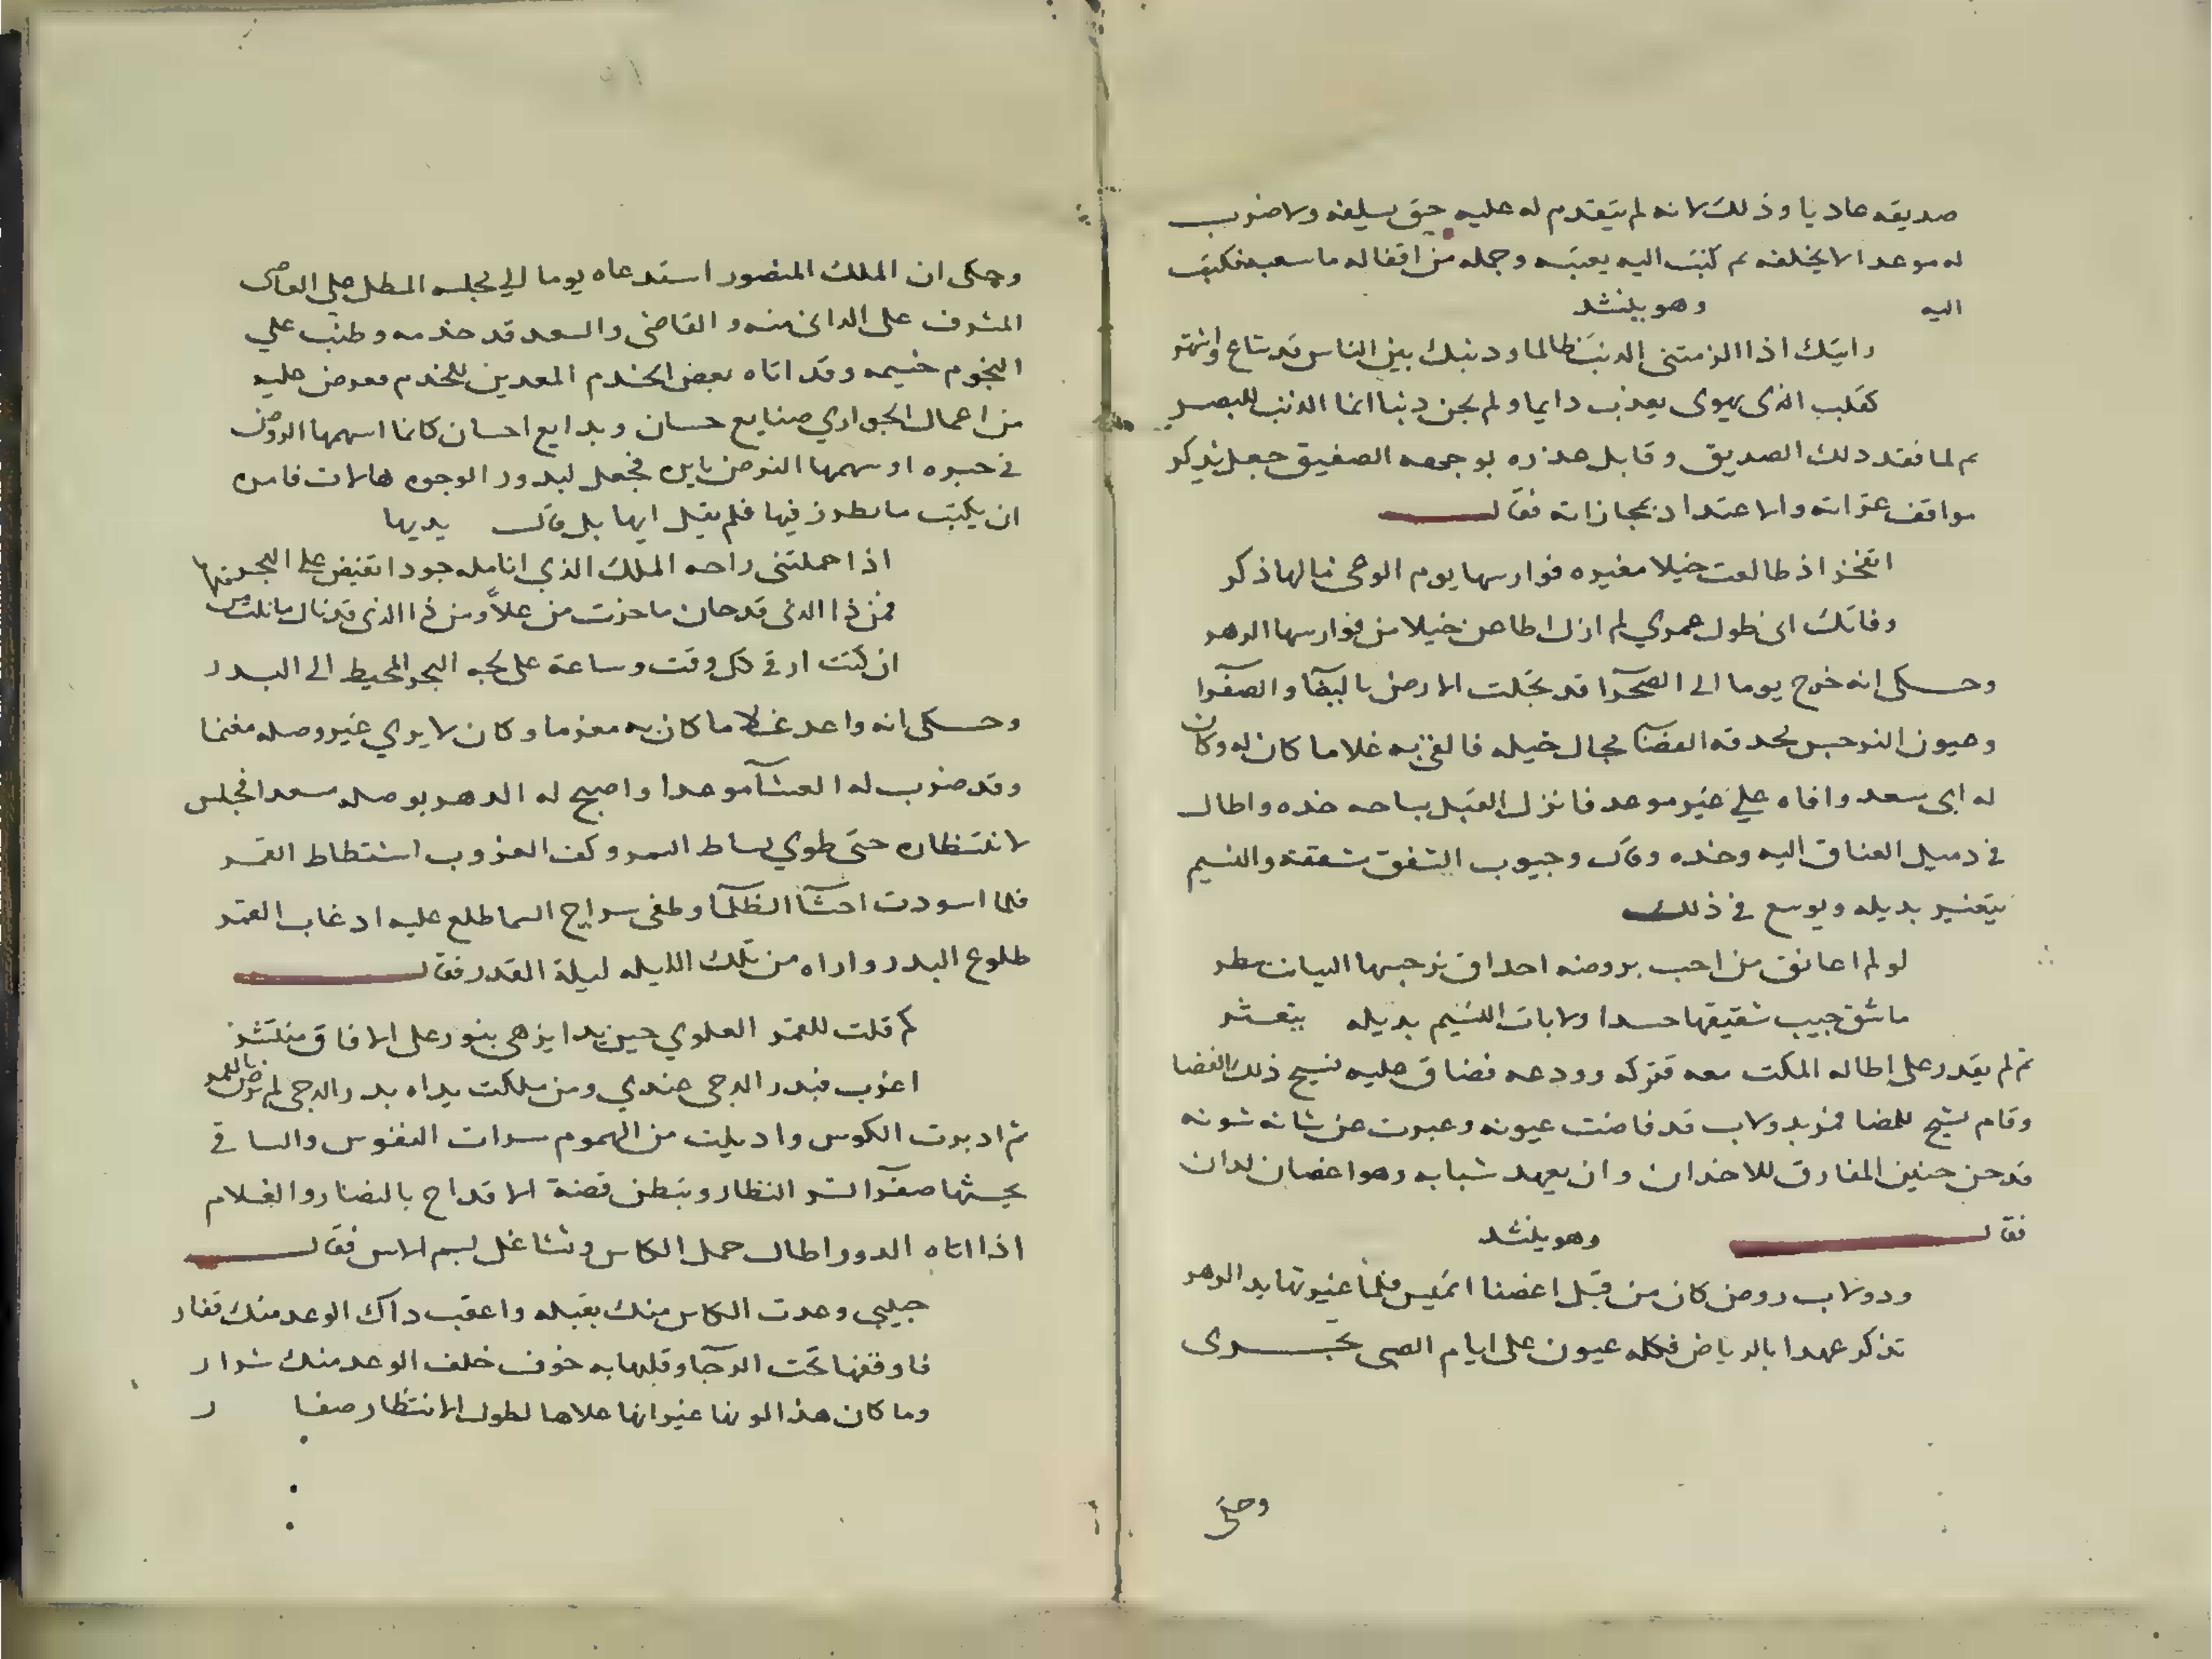 صديقه عاديا وذلك لانه لم يتقدم له عليه حق يسلفه ولا ضرب
له موعدا لا يخلفه ثم كتب اليه يعتبه وحمله من اثقاله ما سعبه فكتب
اليه وهو ينشد
رايتك اذا الزمتنى الذنب ظالما وذنبك بين الناس قد شاع واشتهر
كقلب الذى يهوى يعذب دايما ولم يجن ذنبا انما الذنب للبصر
ثم لما فقد ذلك الصديق وقابل عذره بوجهه الصفيق جعل يذكر
مواقف عثراته والاعتداد بمجازاته فقال
اتفخر اذ طالعت خيلا مغيره فوارسها يوم الوغى مالها ذكر
وفاتك انى طول عمري لم ازل اطاعن خيلا من فوارسها الدهر
وحكى انه خرج يوما الى الصحرآ قد تجلت الارض بالبيضآ والصفرآ
وعيون النرجس محدقه الفضآ مجال خيله فالفى به غلاما كان له وكان
له ابى سعد وافاه علي غير موعد فانزل القبل بساحه خده واطال
في ذميل العناق اليه وخده وقال وجيوب الشفق شققة والنسيم
يتعثر بذيله ويوسع في ذلك
لو لم اعانق من احب بروضه احداق نرجسها الينا تنظر
ما شق جيب شقيقها حسدا ولا بات النسيم بذيله يتعثر
ثم لم يقدر على اطاله المكث معه فتركه وودعه فضاق عليه فسيح ذلك الفضا
وقام لينيح للمضا فمر بدولاب قد فاضت عيونه وعبرت عن شانه شونه
قد حن حنين المفارق للاخدان وان بعهد شبابه وهو اغصان لدان
فقال وهو ينشد
ودولاب روض كان من قبل اغصنا تميس فلما غيرتها يد الدهر
تذكر عهدا بالرياض فكله عيون على ايام الصبى تجرى
وحكى
وحكى ان الملك المنصور استدعاه يوما الي مجلسه المطل علي العاصى
المشرف على الدانى منه والقاضى والسعد قد خدمه وطنب علي
النجوم خيمه وقد اتاه بعض الخدم المعدين للخدم فعرض عليه
من اعمال الجواري صنايع حسان وبدايع احسان كانما اسهمها الروض
في حبره او سهمها النرجس بابره فجعل لبدور الوجوه هالات فامره
ان يكتب ما يطرز فيها فلم يقل ايها بل قال يديها
اذا حملتنى راحه الملك الذي انامله جودا تفيض على البحر
فمن ذا الذى قد حاز ما حزت من علاً ومن ذا الذى قد نال ما نلت من
ان كنت ارقى كل وقت وساعة على لجه البحر المحيط الى البدر
وحكى انه واعد غلاما كان به مغرما وكان لا يري غير وصله مغنما
وقد ضرب له العشآ موعدا واصبح له الدهر بوصله سعدا فجلس
لانتظاره حتى طوي بساط السمر وكف الغروب اشتطاط القمر
فلما اسودت احشآ الظلمآ وطفى سراج السما طلع عليه اذ غاب القمر
طلوع البدر واراه من تلك الليله ليلة القدر فقال
كم قلت للقمر العلوي حين بدا يزهى بنور على الافاق منتشر
اغرب فبدر الدجى عندي ومن ملكت يداه بدر الدجى لم يرض بالقمر
ثم اديرت الكوس واديلت من الهموم سرات النفوس والساقي
يحثها صفرآ تسر النظار ويبطن فضة الاقداح بالنضار والغلام
اذا اتاه الدور اطال حمل الكاس وتشاغل بسم الاس فقال
حبيبي وعدت الكاس منك بقبله واعقب ذاك الوعد منك نفار
فاوقفتها تحت الرجآ وقلبها به خوف خلف الوعد منك شرار
وما كان هذا لونها غير انها علاها لطول الانتظار صفار